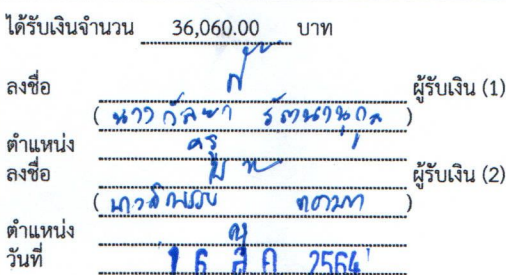 ได้รับเงินจำนวน 36,060.00 บาท
ลงชื่อ ผู้รับเงิน (1)
( นางกัลยา รัตนานุกูล )
ตำแหน่ง ครู
ลงชื่อ ผู้รับเงิน (2)
( )
ตำแหน่ง
วันที่ 16 ส.ค. 2564